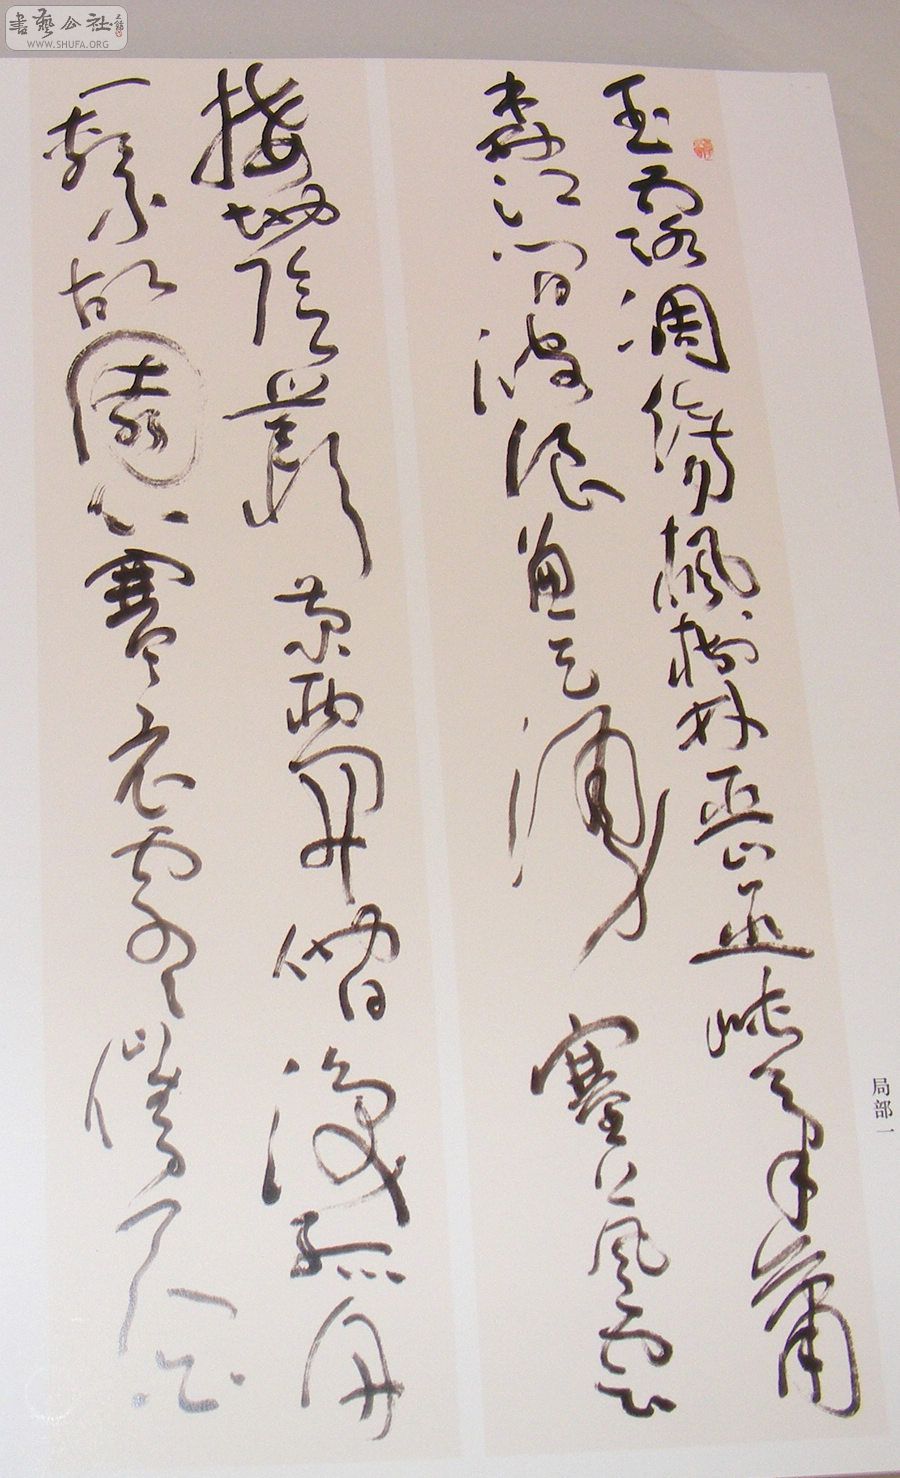 書藝公社
WWW.SHUFA.ORG
玉露凋傷楓樹林巫山巫峽氣蕭
森江間波浪兼天湧塞上風雲
接地陰叢菊兩開他日淚孤舟
一繫故園心寒衣處〻催刀尺
局部一